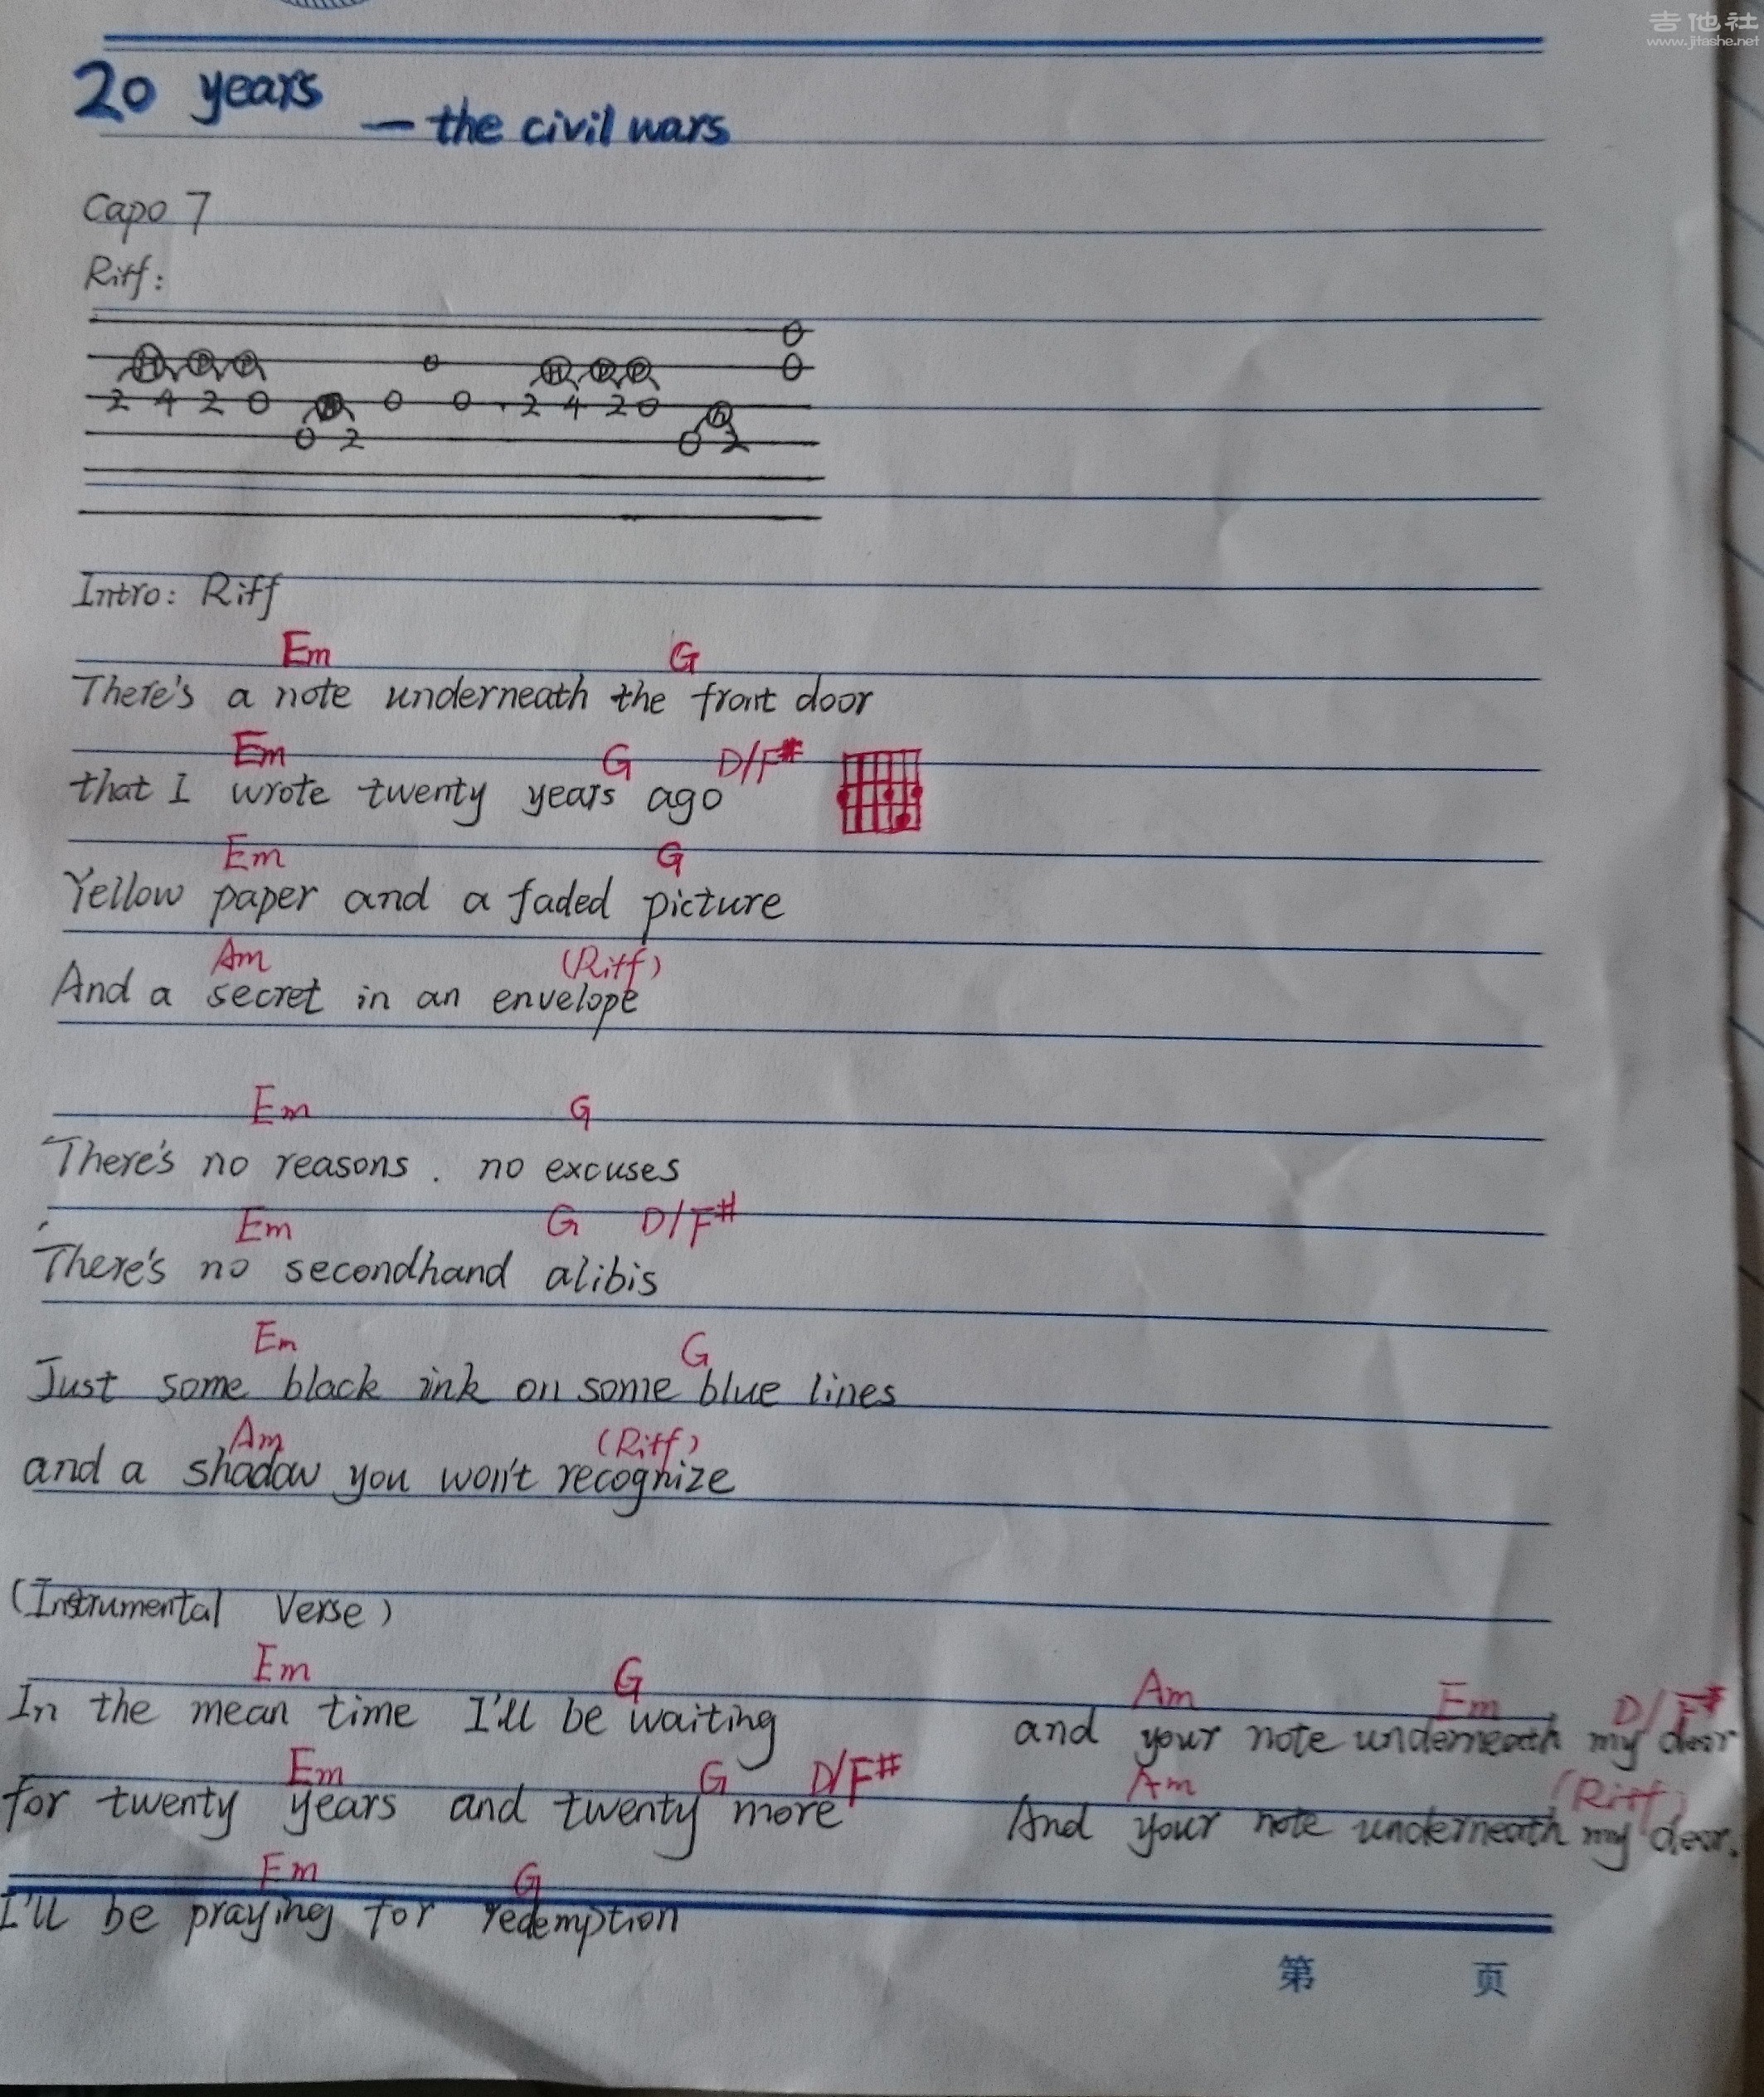 吉他社
www.jitashe.net
20 years
— the civil wars
Capo 7
Riff:
H P P 0
2 4 2 0 H 0 0 . 2 4 2 0 H
0 0 2 0 0 2
Intro: Riff
Em G
There's a note underneath the front door
Em G D/F#
that I wrote twenty years ago
Em G
Yellow paper and a faded picture
Am (Riff)
And a secret in an envelope
Em G
There's no reasons . no excuses
Em G D/F#
There's no secondhand alibis
Em G
Just some black ink on some blue lines
Am (Riff)
and a shadow you won't recognize
(Instrumental Verse)
Em G
In the mean time I'll be waiting
Em G D/F#
for twenty years and twenty more
Em G
I'll be praying for redemption
Am Em D/F#
and your note underneath my door
Am (Riff)
And your note underneath my door.
第 页